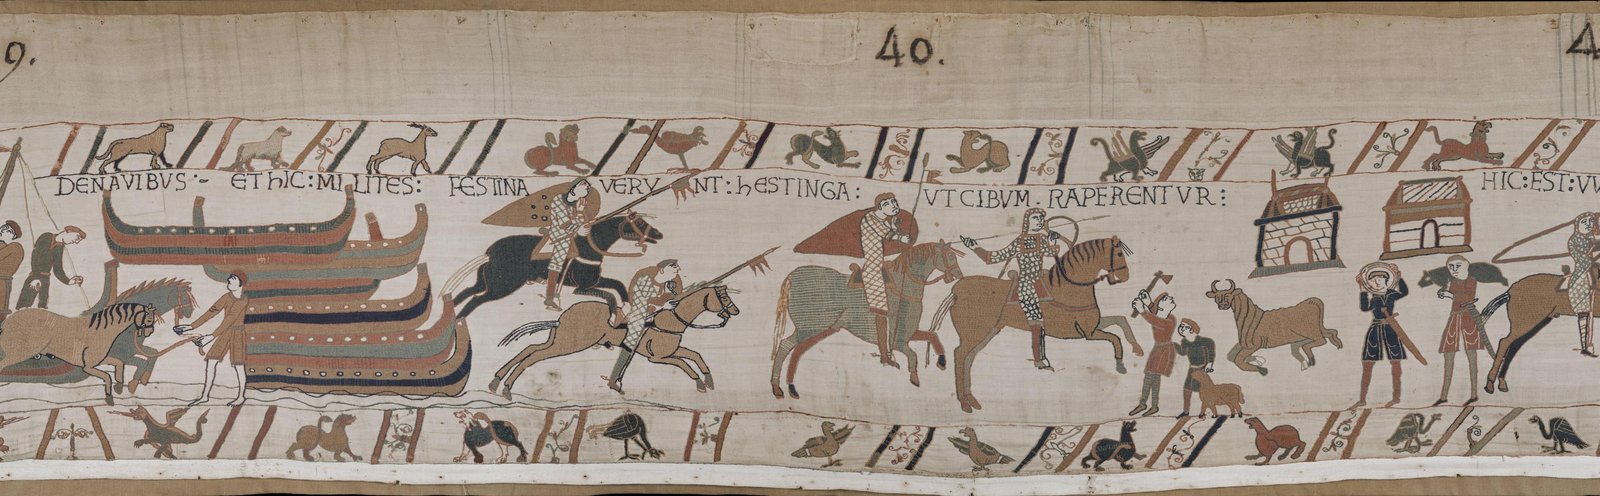 9. 40. 4
DENAVIBVS :- ET hIC : MILITES : FESTINA VERV NT : hESTINGA : VT CIBVM . RAPERENTVR : HIC : EST : VV